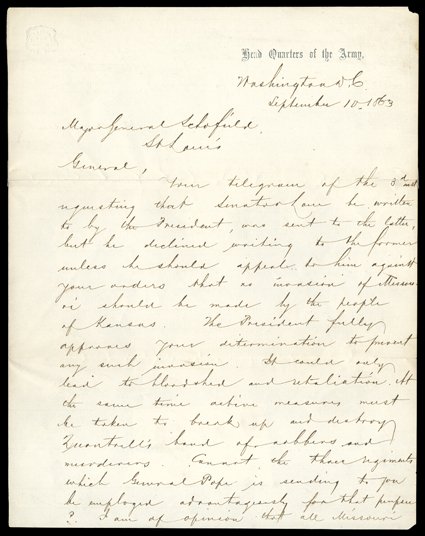 Head Quarters of the Army,
Washington D.C
September 10. 1863
Major General Schofield,
St Louis
General,
Your telegram of the 3d inst
requesting that Senator Lane be written
to by the President, was sent to the latter,
but he declined writing to the former
unless he should appeal to him against
your orders that no invasion of Missou
ri should be made by the people
of Kansas. The President fully
approves your determination to prevent
any such invasion. It could only
lead to bloodshed and retaliation. At
the same time active measures must
be taken to break up and destroy
Quantrell's band of robbers and
murderers. Cannot the three regiments
which General Pope is sending to you
be employed advantageously for that purpose
? I am of opinion that all Missouri